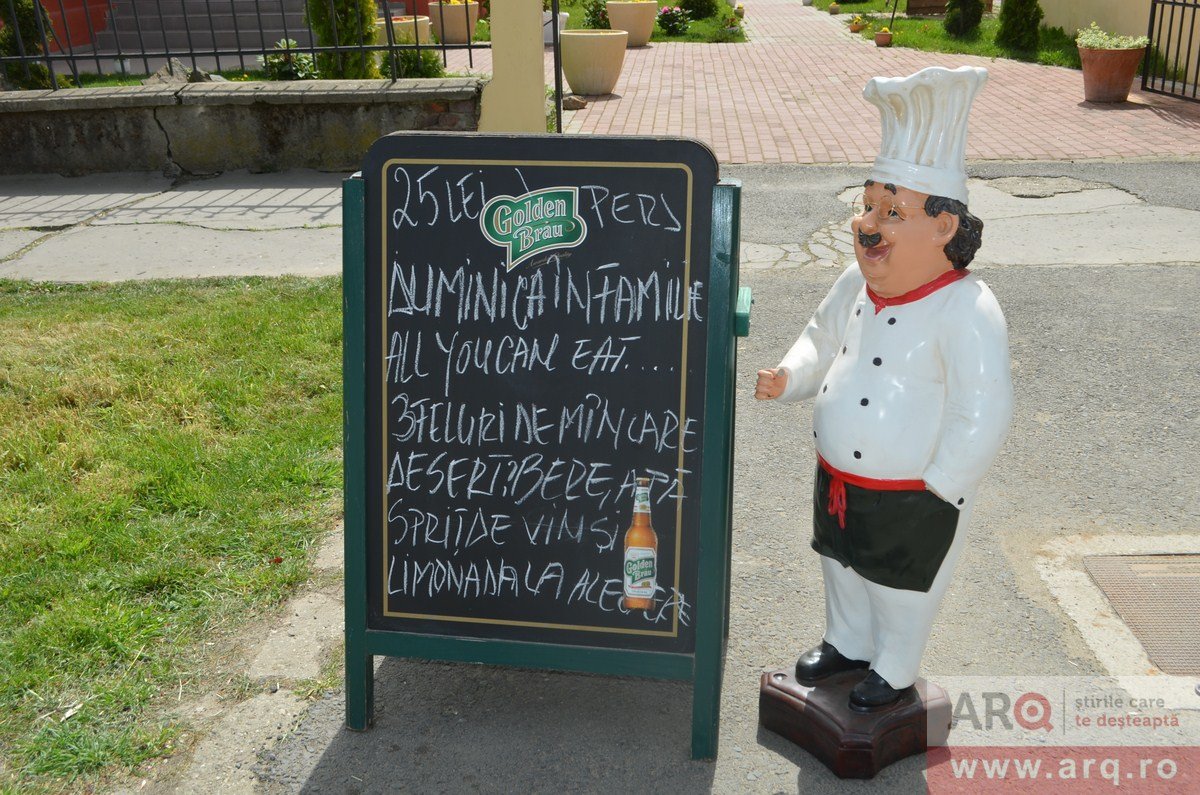 25 LEI / PERS
Golden
Brau
DUMINICA ÎN FAMILIE
ALL YOU CAN EAT....
3 FELURI DE MÎNCARE
DESERT, BERE, APĂ
SPRIȚ DE VIN ȘI
LIMONADA LA ALEGERE
Golden
Brau
ARQ știrile care
te deșteaptă
www.arq.ro